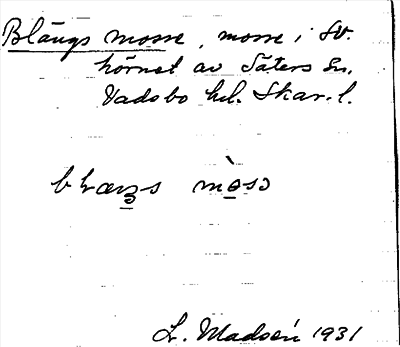 Blängs mosse, mosse i SV.
hörnet av Säters sn.
Vadsbo hd. Skar. l.
mòsɔ
L. Madsén 1931